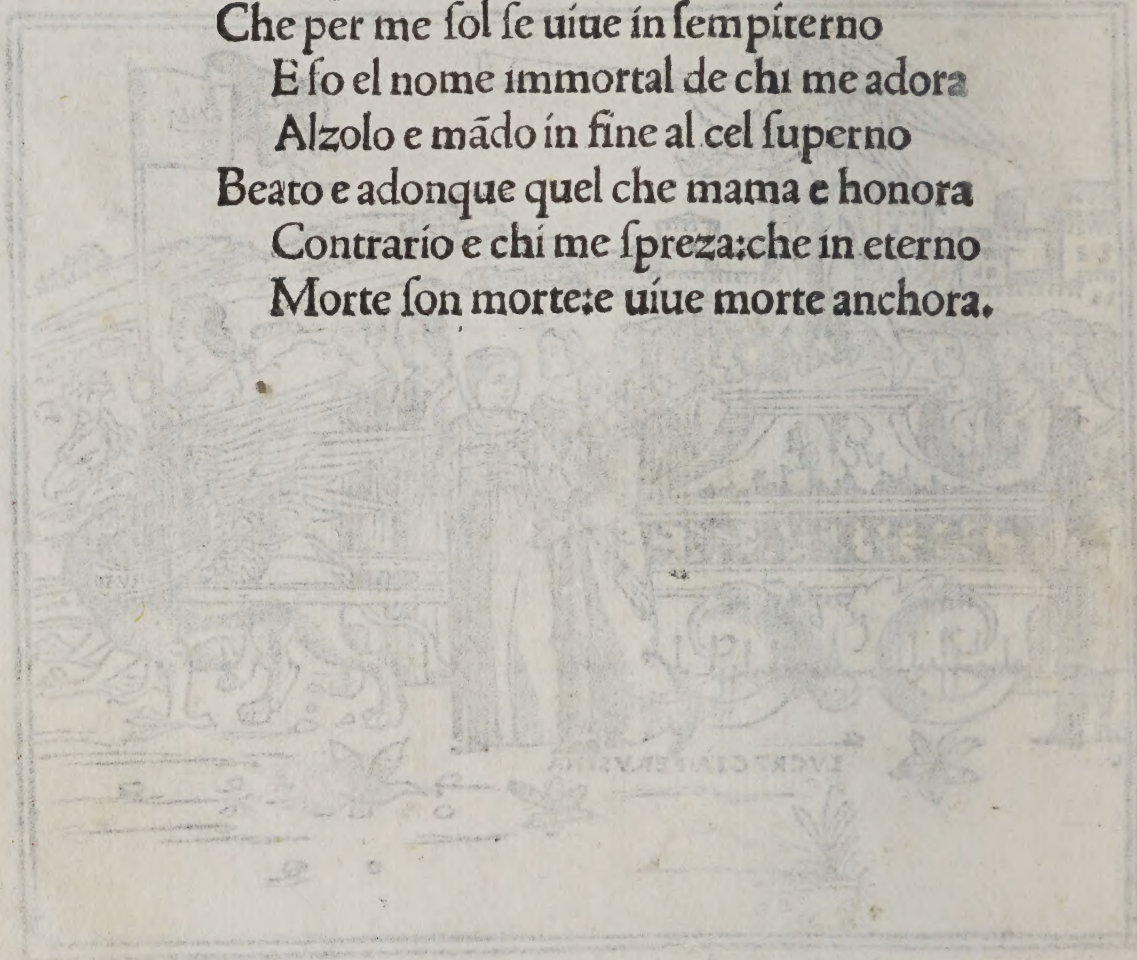 Che per me ſol ſe uiue in ſempiterno
E ſo el nome immortal de chi me adora
Alzolo e mādo in fine al cel ſuperno
Beato e adonque quel che mama e honora
Contrario e chi me ſpreza:che in eterno
Morte ſon morte:e uiue morte anchora.